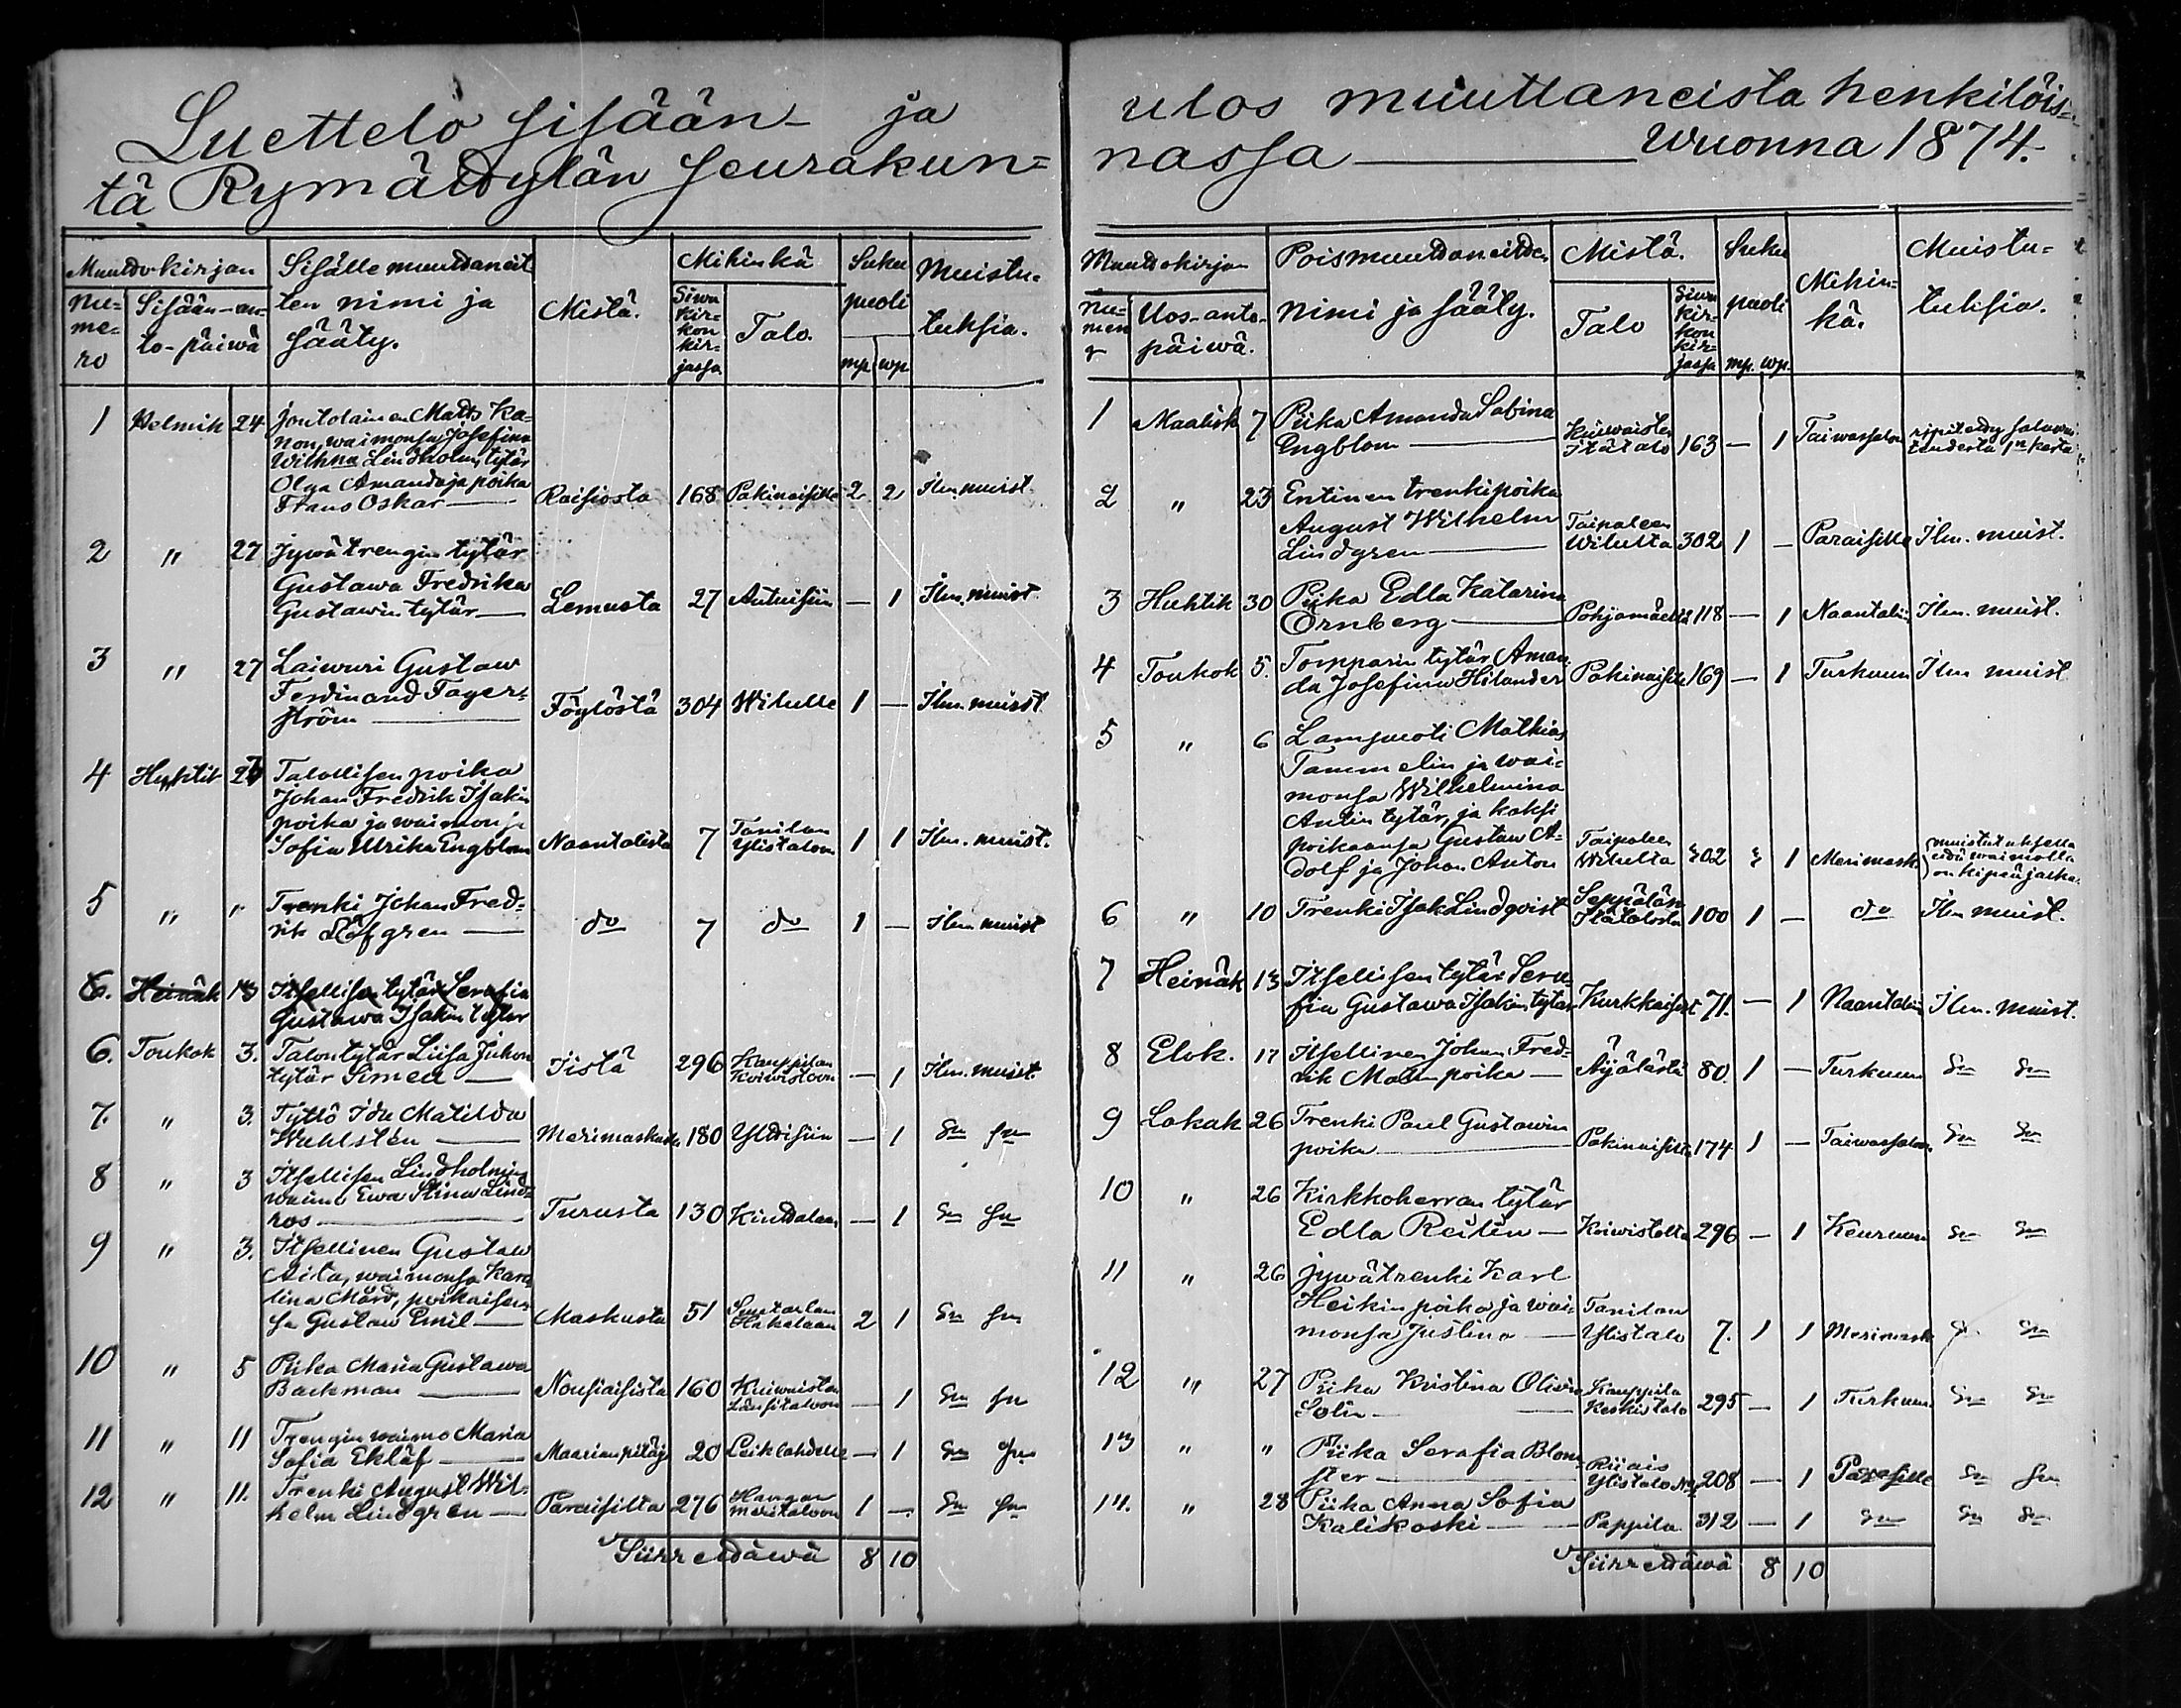 Luettelo sisään- ja
tä Rymättylän seurakun=
Muuttokirjan
Nu=
me=
ro
Sisään-an-
to-päiwä
Sisälle muuttaneit
ten nimi ja
sääty.
Mistä.
Mihinkä
Siwu
kir=
kon
kir=
jassa
Talo.
Suku
puoli
mp. wp.
Muistu-
tuksia.
1 Helmik 24 Joutolainen Matts Ka=
non, waimonsa Josefina
Wilhna Lindholm, tytär
Olga Amanda ja poika
Frans Oskar — Raisiosta 168 Pakinaisille 2 2 Ilm. muist.
2 " 27 Jywätrengin tytär
Gustawa Fredrika
Gustawin tytär — Lemusta 27 Antuisiin — 1 Ilm. muist.
3 " 27 Laiwuri Gustaw
Ferdinand Fager=
ström — Föglöstä 304 Wilulle 1 — Ilm. muist
4 Huhtik 27 Talollisen poika
Johan Fredrik Isakin
poika ja waimonsa
Sofia Ulrika Engblom Naantalista 7 Tanilan
Ylistaloon 1 1 Ilm. muist.
5 " " Trenki Johan Fred=
rik Löfgren — do 7 do 1 — Ilm muist
6. Heinäk 13 Itsellisen tytär Serafia
Gustawa Isakin tytär
6. Toukok 3. Talon tytär Liisa Juhon
tytär Simed — Iistä 296 Kauppilan
Koiwistoon — 1 Ilm. muist.
7. " 3. Tyttö Ida Matilda
Wahlstén — Merimaskusta 180 Yltäisiin — 1 Sn Sn
8 " 3 Itsellisen Lindholmin
waimo Ewa Stina Lind=
ros — Turusta 130 Kuddalaan — 1 Sn Sn
9 " 3. Itsellinen Gustaw
Aita, waimonsa Karo
lina Mård, poikaisen
sa Gustaw Emil — Maskusta 51 Hakalaan 2 1 Sn Sn
10 " 5 Piika Maria Gustawa
Backman — Nousiaisista 160 Kuiwaisten
Länsitaloon — 1 Sn Sn
11 " 11 Trengin waimo Maria
Sofia Eklöf — Maarian pitäjä 20 Leiklahdelle — 1 Sn Sn
12 " 11. Trenki August Wil=
helm Lindgren — Paraisilta 276 Hangan
meritaloon 1 — Sn Sn
Siirrettäwä 8 10
ulos muuttaneista henkilöis=
nassa — Wuonna 1874.
Muuttokirjan
Nu=
men
Ulos-anto-
päiwä.
Poismuuttaneitten
nimi ja sääty.
Mistä.
Talo
Siwu
kir=
kon
kir=
jassa
Suku
puoli
mp. wp.
Mihin=
kä.
Muistu=
tuksia.
1 Maalisk 7 Piika Amanda Sabina
Engblom — Kuiwaisten
Itätalo 163 — 1 Taiwassalon
2 " 23 Entinen trenkipoika
August Wilhelm
Lindgren — Taipaleen
Wilulta 302 1 — Paraisille Ilm. muist.
3 Huhtik 30 Piika Edla Katarina
Örnberg — Pohjamäeltä 118 — 1 Naantaliin Ilm. muist.
4 Toukok 5. Torpparin tytär Aman
da Josefina Hilander Pakinaisilta 169 — 1 Turkuun Ilm muist
5 " 6 Lampuoti Mathias
Tammelin ja wai=
monsa Wilhelmina
Antin tytär, ja kaksi
poikaansa Gustaw A=
dolf ja Johan Anton Taipaleen
Wilulta 302 3 1 Merimask.
6 " 10 Trenki Isak Lindqvist Seppälän
Itätalosta 100 1 — do Ilm muist.
7 Heinäk 13 Itsellisen tytär Sera
fia Gustawa Isakin tytär Kurkkaisist 71. — 1 Naantaliin Ilm. muist.
8 Elok. 17 Itsellinen Johan Fred=
rik Matin poika — Äijälästä 80. 1 — Turkuun Sn Sn
9 Lokak 26 Trenki Paul Gustawin
poika — Pakinaisilta 174 1 — Taiwassaloon Sn Sn
10 " 26 Kirkkoherran tytär
Edla Reilin — Koiwistolta 296 — 1 Keuruun Sn Sn
11 " 26 Jywätrenki Karl
Heikin poika ja wai=
monsa Justina — Tanilan
Ylistalo 7. 1 1 Merimask Sn Sn
12 " 27 Piika Kristina Oliwia
Solin — Kauppila
Keskistalo 295 — 1 Turkuun Sn Sn
13 " " Piika Serafia Blom
ster — Riiais
Ylistalo 208 — 1 Paraisille Sn Sn
14. " 28 Piika Anna Sofia
Kalikoski — Pappila 312 — 1 Sn Sn Sn
Siirrettäwä 8 10